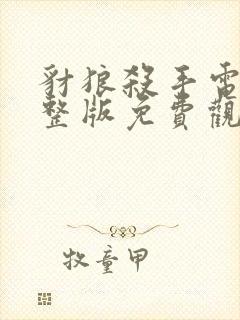 豺狼殺手電
整版免費觀
牧童甲